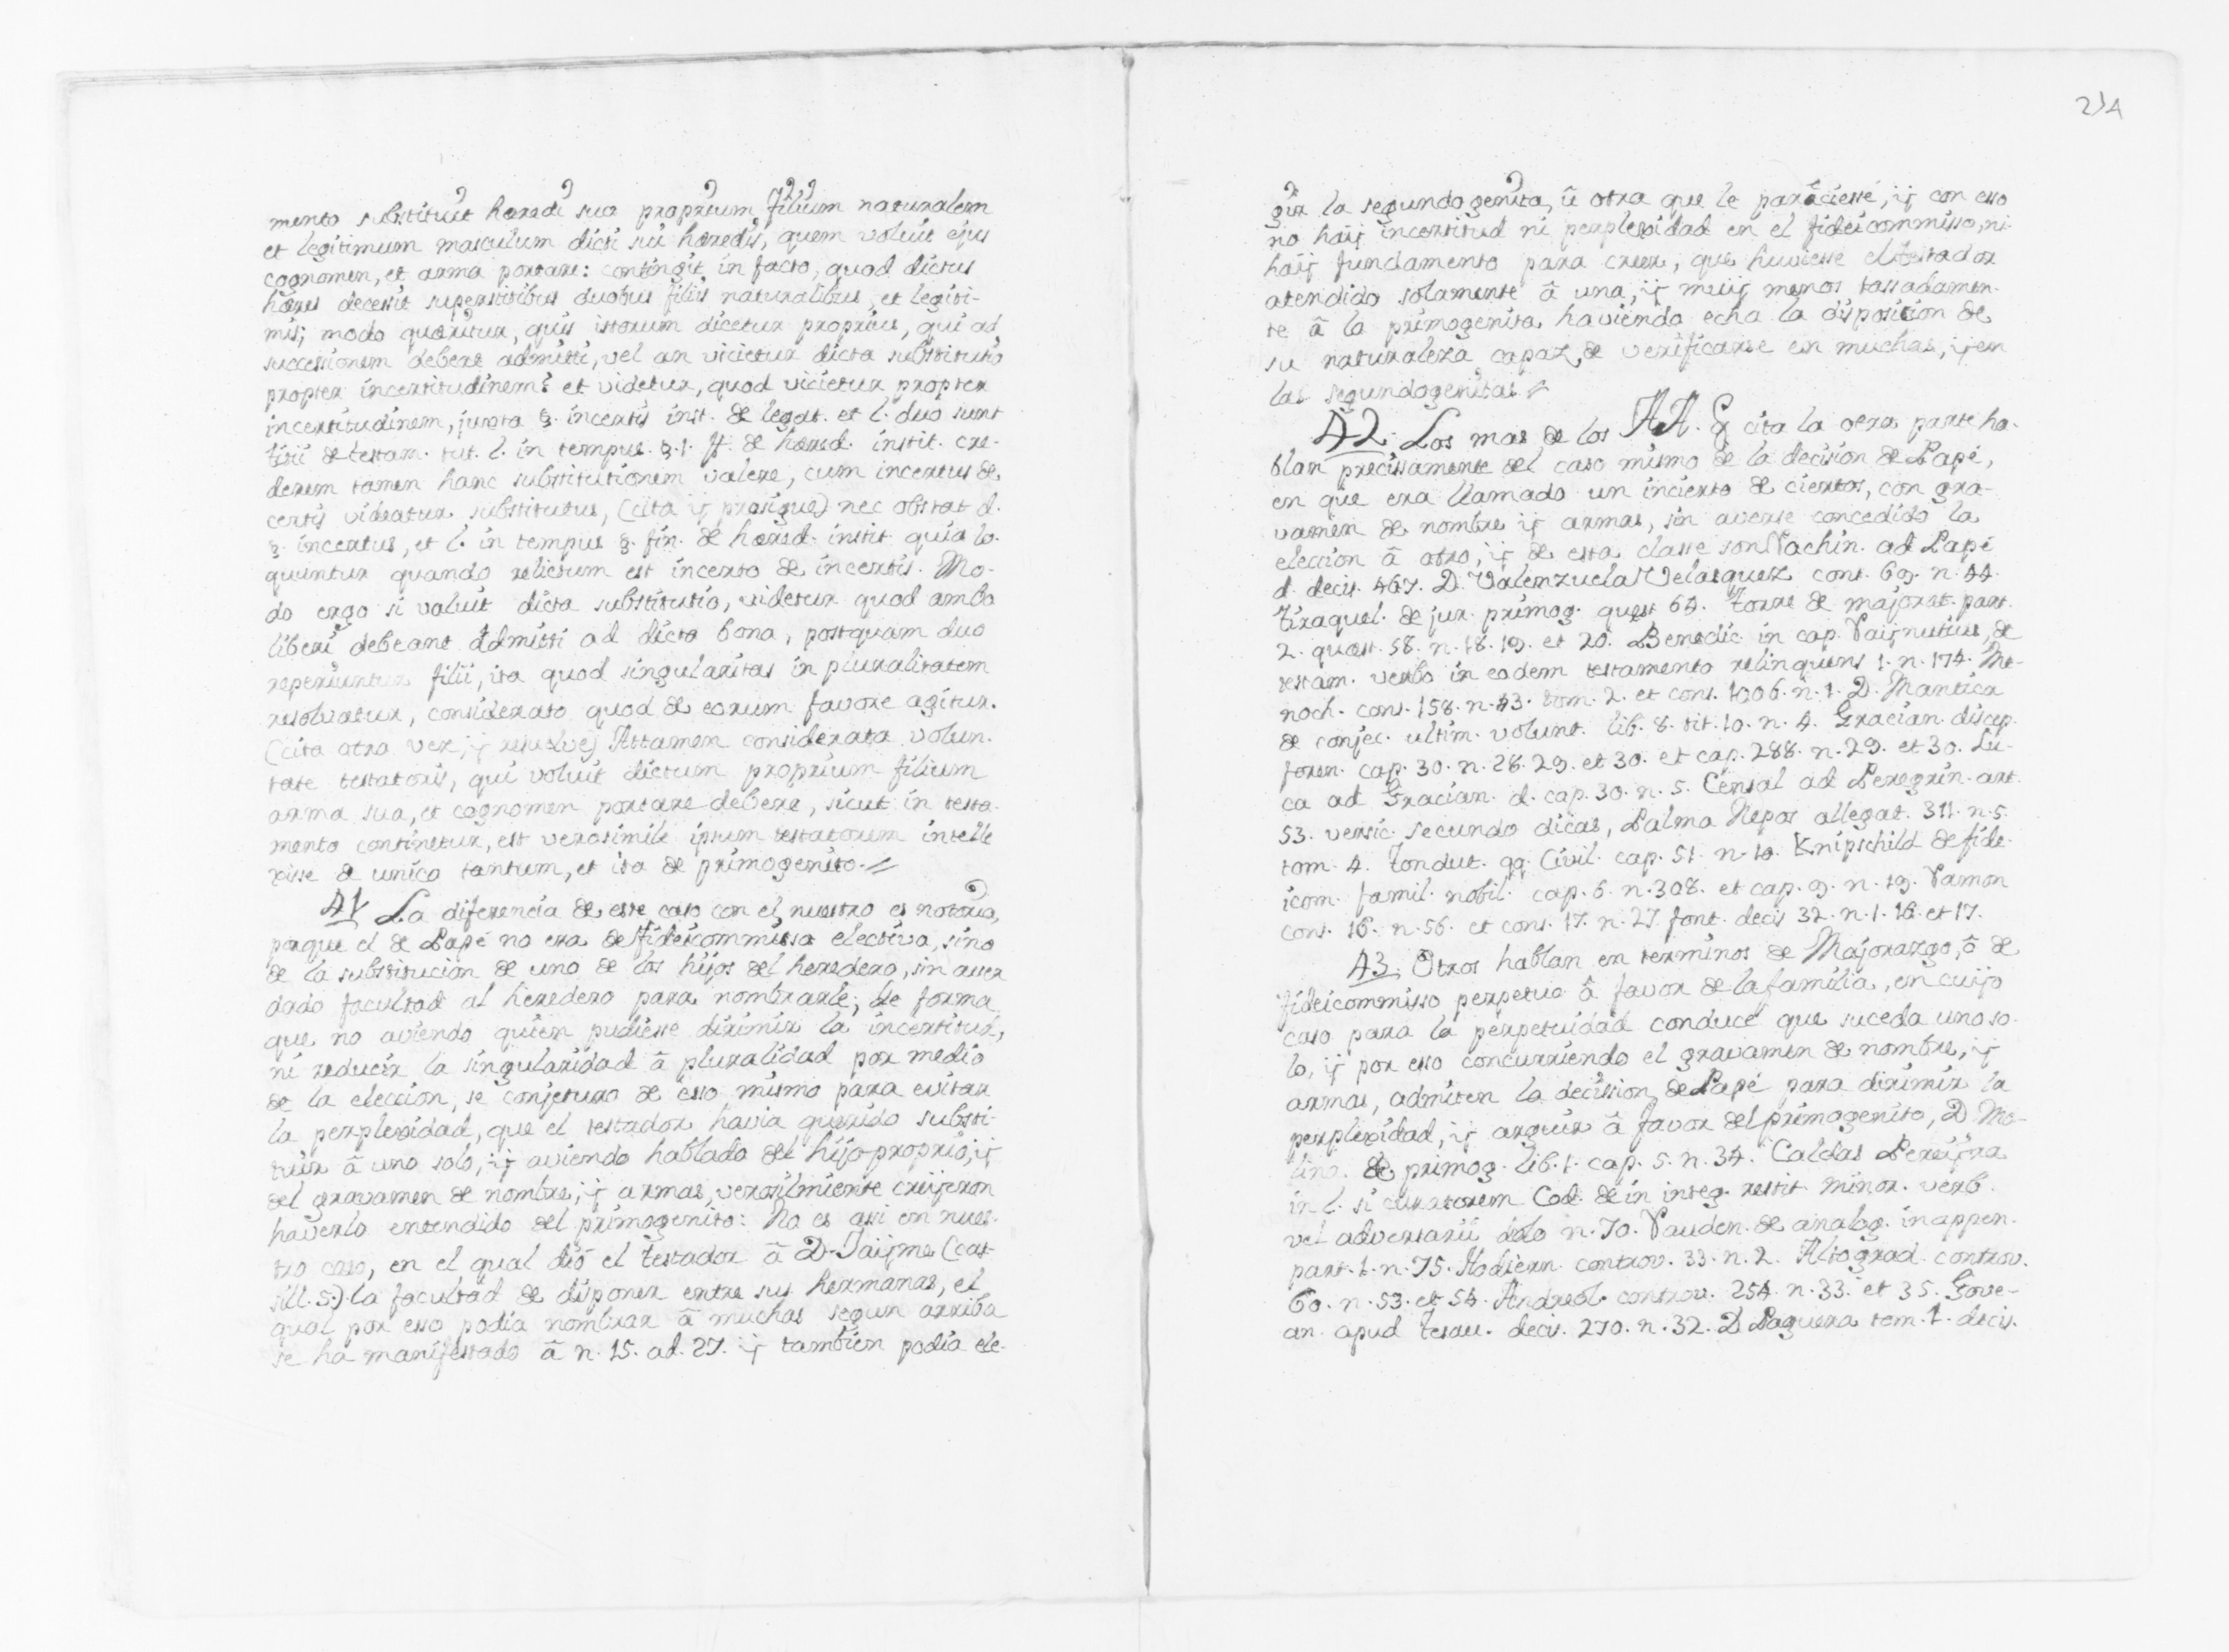 mento substituit hæredi suo proprium filium naturalem
et legitimum masculum dicti sui hæredis, quem voluit ejus
cognomen, et arma portare: contingit in facto, quod dictus
hæres decessit superstitibus duobus filiis naturalibus, et legiti-
mis; modo quæritur, quis istorum dicetur proprius, qui ad
successionem debeat admitti, vel an vicietur dicta substitutio
propter incertitudinem? et videtur, quod vicietur propter
incertitudinem, juxta §. incertis inst. de legat. et l. duo sunt
titii de testam. tut. l. in tempus. §. 1. ff. de hæred. instit. cre-
derem tamen hanc substitutionem valere, cum incertus de
certis videatur substitutus, (cita ij prosigue) nec obstat d.
§. incertus, et l. in tempus §. fin. de hæred. instit. quia lo-
quuntur quando relictum est incerto de incertis. Mo-
do ergo si valuit dicta substitutio, videtur quod ambo
liberi debeant admitti ad dicta bona, postquam duo
reperiuntur filii, ita quod singularitas in pluralitatem
resolvatur, considerato quod de eorum favore agitur.
(cita otra vez, ij resuelve) Attamen considerata volun-
tate testatoris, qui voluit dictum proprium filium
arma sua, et cognomen portare debere, sicut in testa-
mento continetur, est verosimile ipsum testatorem intelle
xisse de unico tantum, et ita de primogenito.
41 La diferencia de este caso con el nuestro es notoria,
porque el de Papé no era de fideicommisso electivo, sino
de la substitucion de uno de los hijos del heredero, sin aver
dado facultad al heredero para nombrarle; de forma
que no aviendo quien pudiesse dirimir la incertitud,
ni reducir la singularidad â pluralidad por medio
de la eleccion, se conjeturo de esso mismo para evitar
la perplexidad, que el testador havia querido substi-
tuir â uno solo, ij aviendo hablado del hijo proprio, ij
del gravamen de nombre, ij armas, verosilmiente creijeron
haverlo entendido del primogenito: No es assi en nues-
tro caso, en el qual dió el Testador â D. Jaijme (cas-
sill. 5.) la facultad de disponer entre sus hermanas, el
qual por esso podia nombrar â muchas segun arriba
se ha manifestado â n. 15. ad. 27. ij tambien podia ele-
214
gir la segundogenita, û otra que le pareciesse, ij con esso
no haij incertitud ni perplexidad en el fideicommisso, ni
haij fundamento para creer, que huviesse el testador
atendido solamente â una, ij muij menos tassadamen-
te â la primogenita, haviendo echa la disposicion de
su naturaleza capaz de verificarse en muchas, ij en
las segundogenitas
42. Los mas de los AA. q cita la otra parte ha-
blan precissamente del caso mismo de la decision de Papé,
en que era llamado un incierto de ciertos, con gra-
vamen de nombre ij armas, sin averse concedido la
eleccion â otro, ij de esta classe son Vachin. ad Papé
d. decis. 467. D. Valenzuela Velasquez cons. 69. n. 44.
Tiraquel. de jur. primog. quest 64. Torre de majorat. part.
2. quæst. 58. n. 18. 19. et 20. Benedic. in cap. Raijnutius, de
testam. verbo in eodem testamento relinquens 1. n. 174. Me-
noch. cons. 158. n. 43. tom. 2. et cons. 1006. n. 1. D. Mantica
de conjec. ultim. volunt. lib. 8. tit. 10. n. 4. Gracian. discep.
foren. cap. 30. n. 28. 29. et 30. et cap. 288. n. 29. et 30. Lu-
ca ad Gracian. d. cap. 30. n. 5. Censal ad Peregrin. art.
53. versic. secundo dicas, Palma Nepos allegat. 311. n. 5.
tom. 4. Tondut. qq. Civil. cap. 51. n. 10. Knipschild de fide-
icom. famil. nobil. cap. 6. n. 308. et cap. 9. n. 19. Ramon
cons. 16. n. 56. et cons. 17. n. 27. font. decis 32. n. 1. 16. et 17.
43. Otros hablan en terminos de Majorazgo, ô de
fideicommisso perpetuo â favor de la familia, en cuijo
caso para la perpetuidad conduce que suceda uno so-
lo, ij por esso concurriendo el gravamen de nombre, ij
armas, admiten la decission de Papé para dirimir la
perplexidad, ij arguir â favor del primogenito, D. Mo-
lino. de primog. lib. 1. cap. 5. n. 34. Caldas Pereijra
in l. si curatorem Cod. de in integ. restit. minor. verb.
vel adversarii dolo n. 70. Rauden. de analog. in appen.
part. 1. n. 75. Hodiern. controv. 33. n. 2. Altograd. controv.
60. n. 53. et 54. Andreol. controv. 254. n. 33. et 35. Gove-
an. apud Tesau. decis. 270. n. 32. D. Paguera tom. 1. decis.